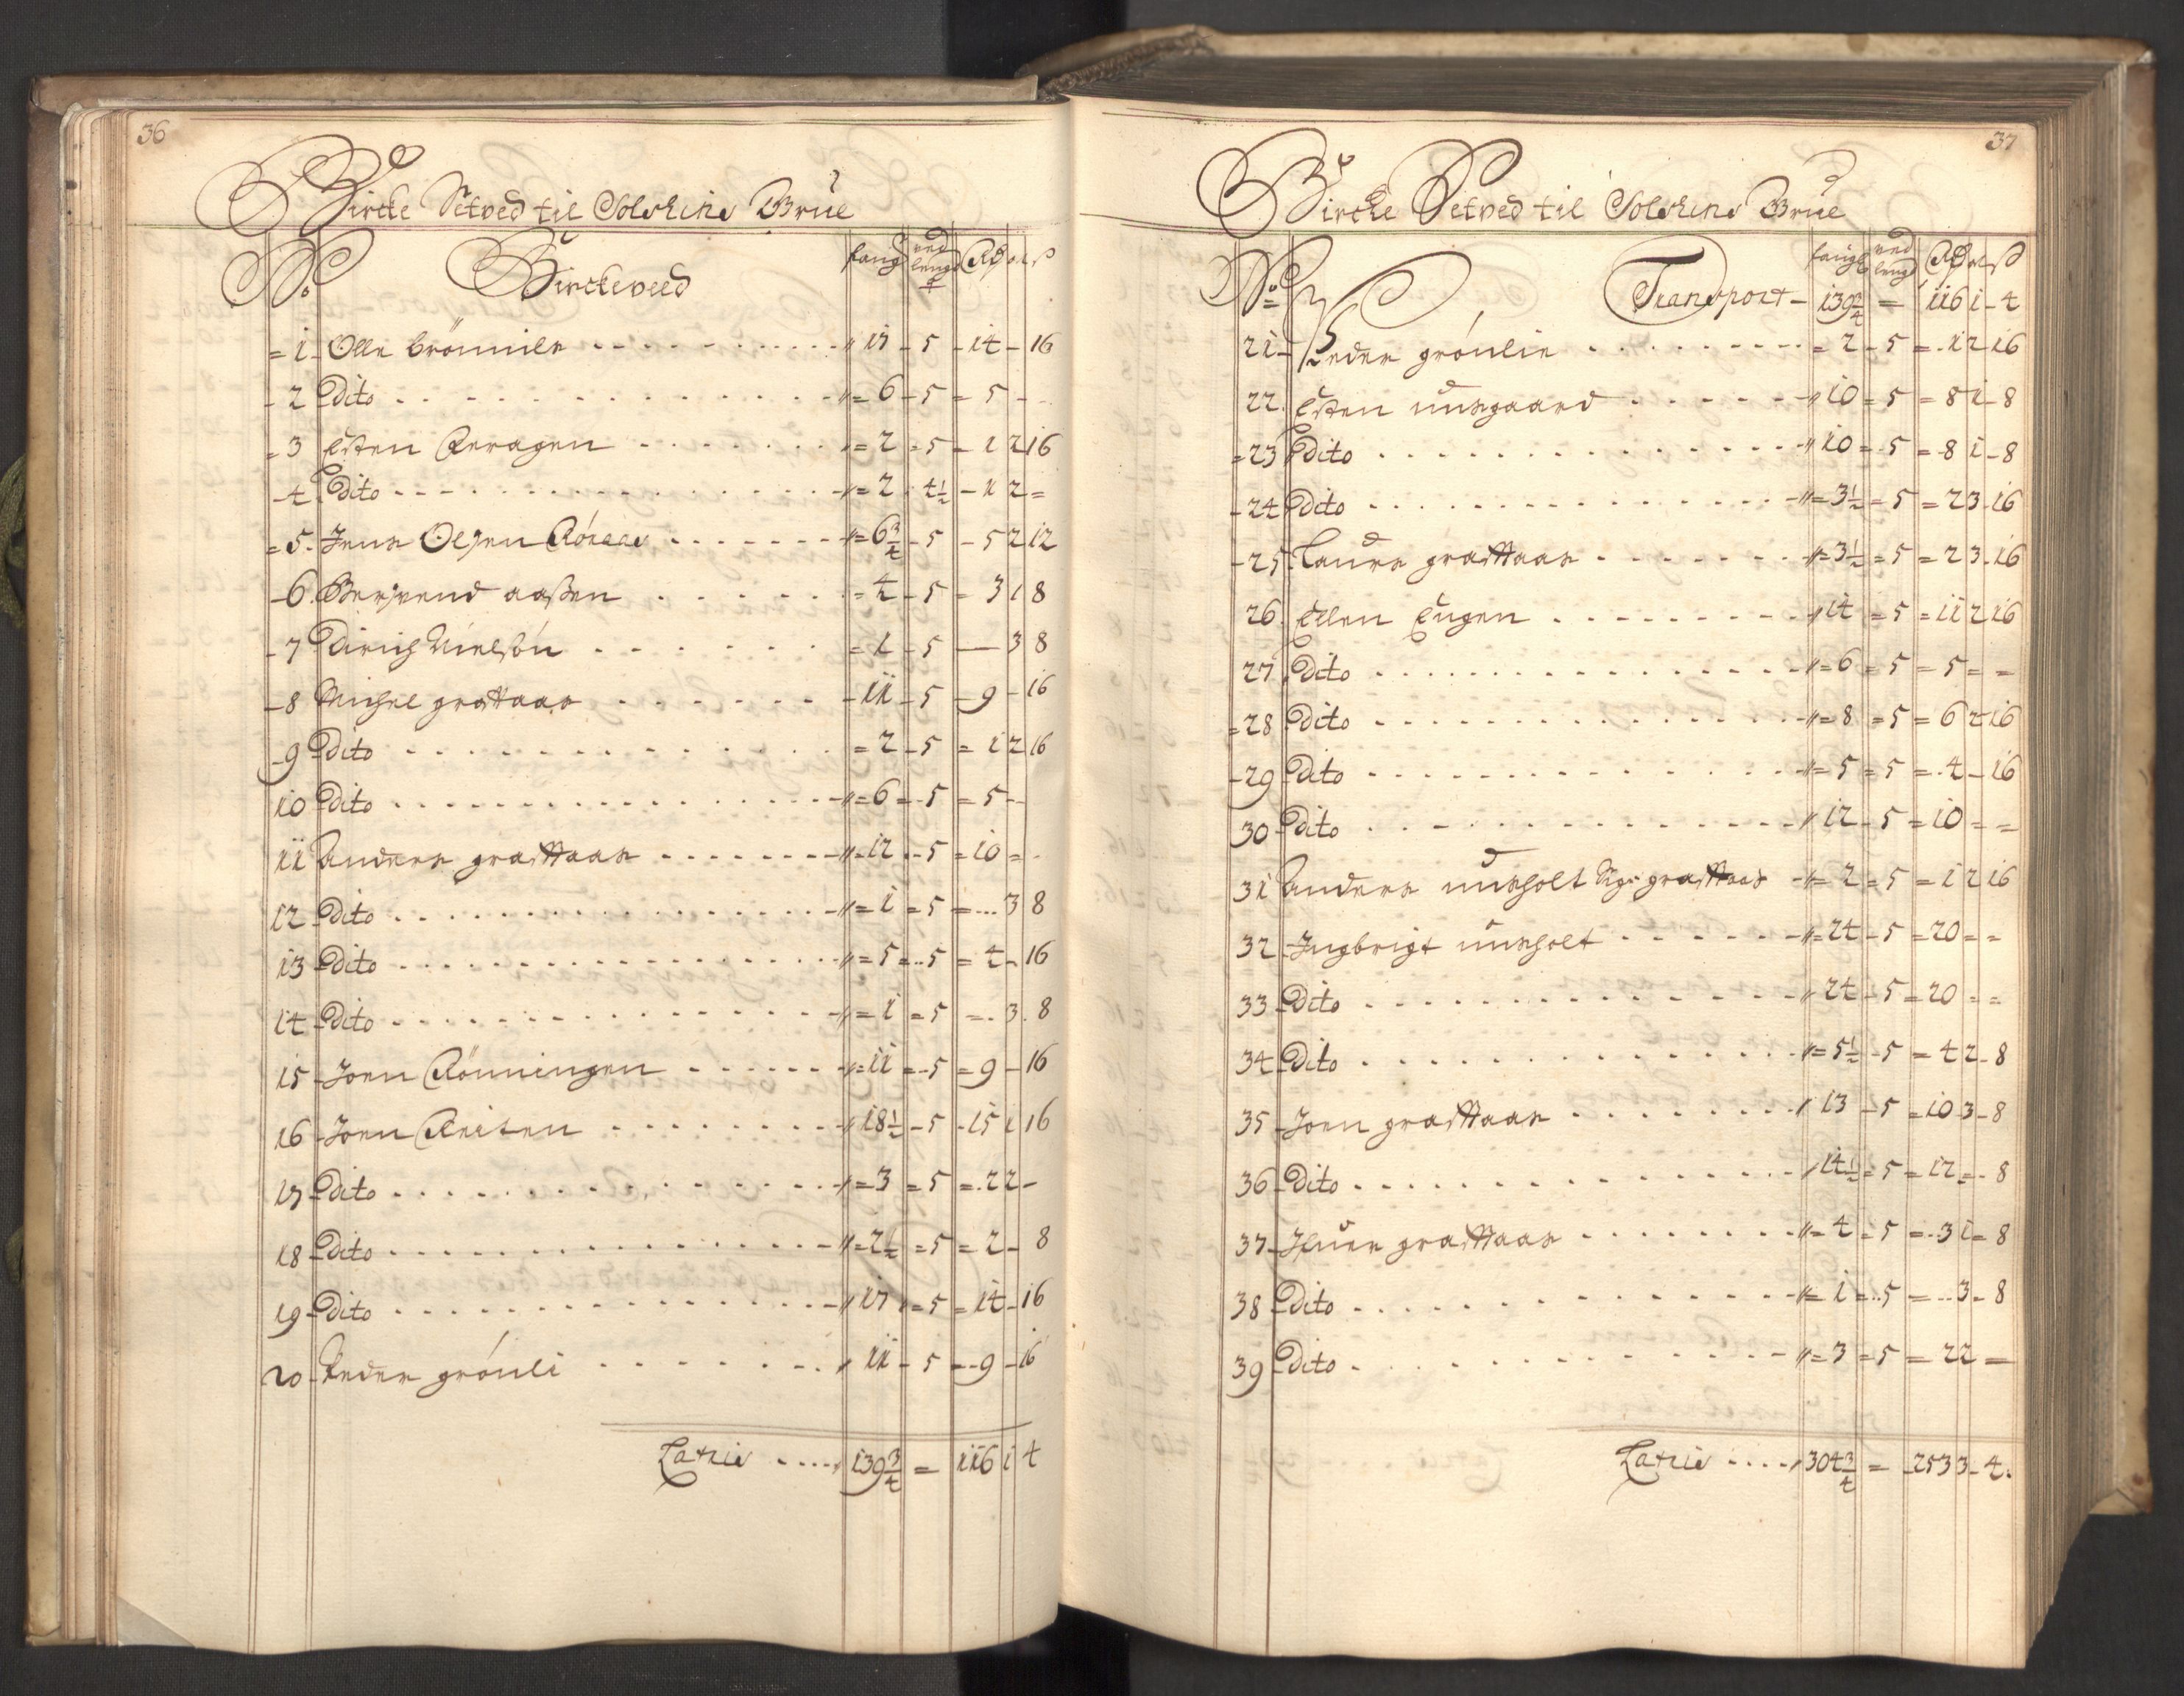 36
Bircke Setved til Solskins Brue
No Birckeveed fang ved lengd Rd ort ß
= 1 - Olle brömmile - - - - " 17 - 5 - 14 - 16
- 2 Dito - - - - " = 6 - 5 = 5 - -
= 3 Esten Aeragen - - - - " = 2 = 5 - 1 2 16
- 4 Dito - - - - " = 2 4½ - 1 2 =
= 5. Jens Olsen Röraas - - - - " = 6¾ - 5 - 5 2 12
- 6. Bersvend aasen - - - - = 4 - 5 = 3 1 8
- 7 Dirich Nielsön - - - - = 1 - 5 — 3 8
- 8 Michel graattaas - - - - - 11 - 5 - 9 - 16
- 9 Dito - - - - = 2 - 5 = 1 2 16
10 Dito - - - - " = 6 = 5 = 5 - -
11 Anders graattaas - - - - " = 12 - 5 = 10 = -
12 Dito - - - - " = 1 = 5 = ... 3 8
13 Dito - - - - " = 5 = 5 = 4 - 16
14 Dito - - - - " = 1 = 5 = . 3 . 8
15 - Joen Rönningen - - - - " = 11 = 5 = 9 - 16
16 - Joen Reiten - - - - " 18½ - 5 - 15 1 16
17 - Dito - - - - " = 3 = 5 = . 2 2 -
18 - Dito - - - - " = 2½ = 5 = 2 - 8
19 - Dito - - - - " 17 = 5 = 14 - 16
20 - Peder grönli - - - - " 11 - 5 = 9 - 16
Latris .... 139¾ = 116 1 4
37
Bircke Setved til Solskins Brue
No Transport - fangd 139¾ ved lengd = Rd 116 ort 1 - ß 4
21 - Peder grönlie - - - - = 2 - 5 = . 1 2 16
22. Esten ... - - - - " 10 = 5 = 8 1 - 8
= 23 Dito - - - - " 10 = 5 = 8 1 - 8
- 24 Dito - - - - " = 3½ = 5 = 2 3 - 16
- 25 - Laurs graattaas - - - - " = 3½ = 5 = 2 3 - 16
26. Ellen Eugen - - - - " 14 = 5 = 11 2 16
27. Dito - - - - " = 6 = 5 = 5 = =
= 28 Dito - - - - " = 8 = 5 = 6 2 16
- 29 Dito - - - - " = 5 = 5 = . 4 - 16
30 - Dito - - - - " 12 - 5 = 10 = =
31 Anders ...holt ... graattaas - " = 2 = 5 = 1 2 16
32 - Ingbrigt ...holt - - - - " = 24 - 5 = 20 = =
33 - Dito - - - - " 24 - 5 = 20 = =
34 - Dito - - - - " = 5½ - 5 = 4 2 - 8
35 - Joen graattaas - - - - " 13 - 5 = 10 3 - 8
36 - Dito - - - - " 14½ = 5 = 12 = - 8
37 - Ifuer graattaas - - - - " = 4 = 5 = . 3 1 = 8
38 - Dito - - - - " = 1 = 5 = ... 3 - 8
39 - Dito - - - - " = 3 = 5 = 2 2 =
Latris .... 304¾ = 253 3 - 4.